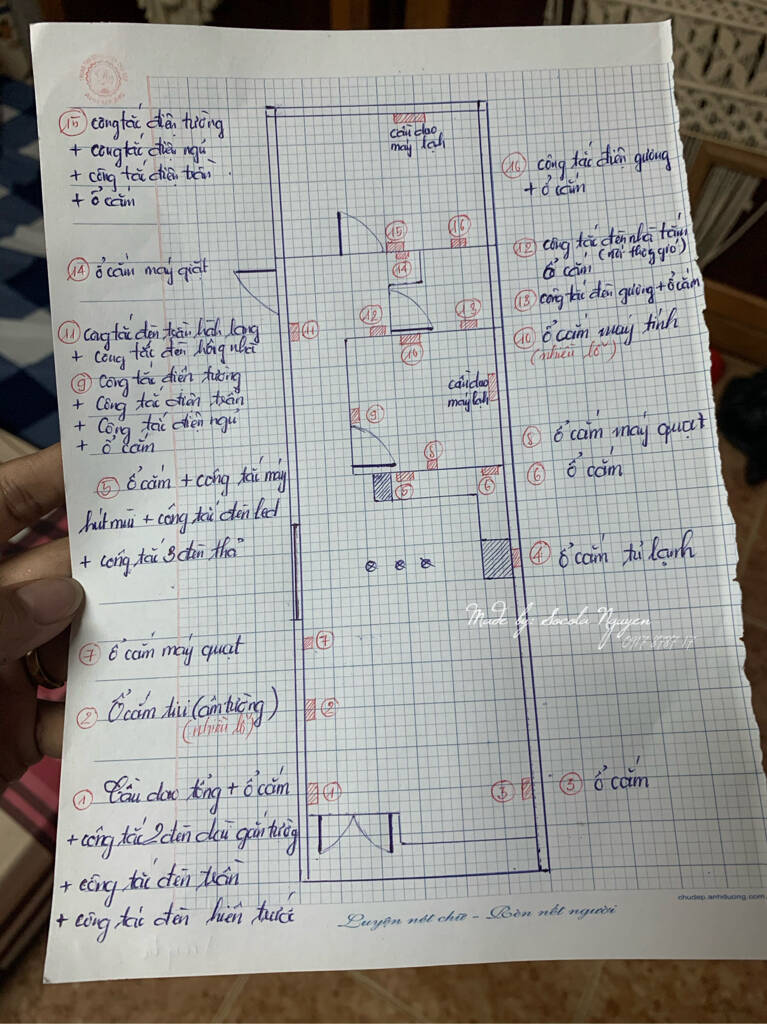 15 công tắc điện tường
+ công tắc điện ngủ
+ công tắc điện trần
+ ổ cắm
14 ổ cắm máy giặt
11 công tắc đèn trần hành lang
+ công tắc đèn hông nhà
9 Công tắc điện tường
+ Công tắc điện trần
+ Công tắc điện ngủ
+ ổ cắm
5 ổ cắm + công tắc máy
hút mùi + công tắc đèn led
+ công tắc 3 đèn thả
7 ổ cắm máy quạt
2 Ổ cắm tivi (âm tường)
(nhiều lỗ)
1 Cầu dao tổng + ổ cắm
+ công tắc 2 đèn dài gắn tường
+ công tắc đèn trần
+ công tắc đèn hiên trước
cầu dao
máy lạnh
15
16
14
11
12
13
10
cầu dao
máy lạnh
9
8
5
6
4
7
2
1
3
16 công tắc điện gương
+ ổ cắm
12 công tắc đèn nhà tắm
ổ cắm (nối thông gió)
13 công tắc đèn gương + ổ cắm
10 ổ cắm máy tính
(nhiều lỗ)
8 ổ cắm máy quạt
6 ổ cắm
4 ổ cắm tủ lạnh
Made by: Socola Nguyen
3 ổ cắm
chudep.anhduong.com
Luyện nét chữ - Rèn nết người